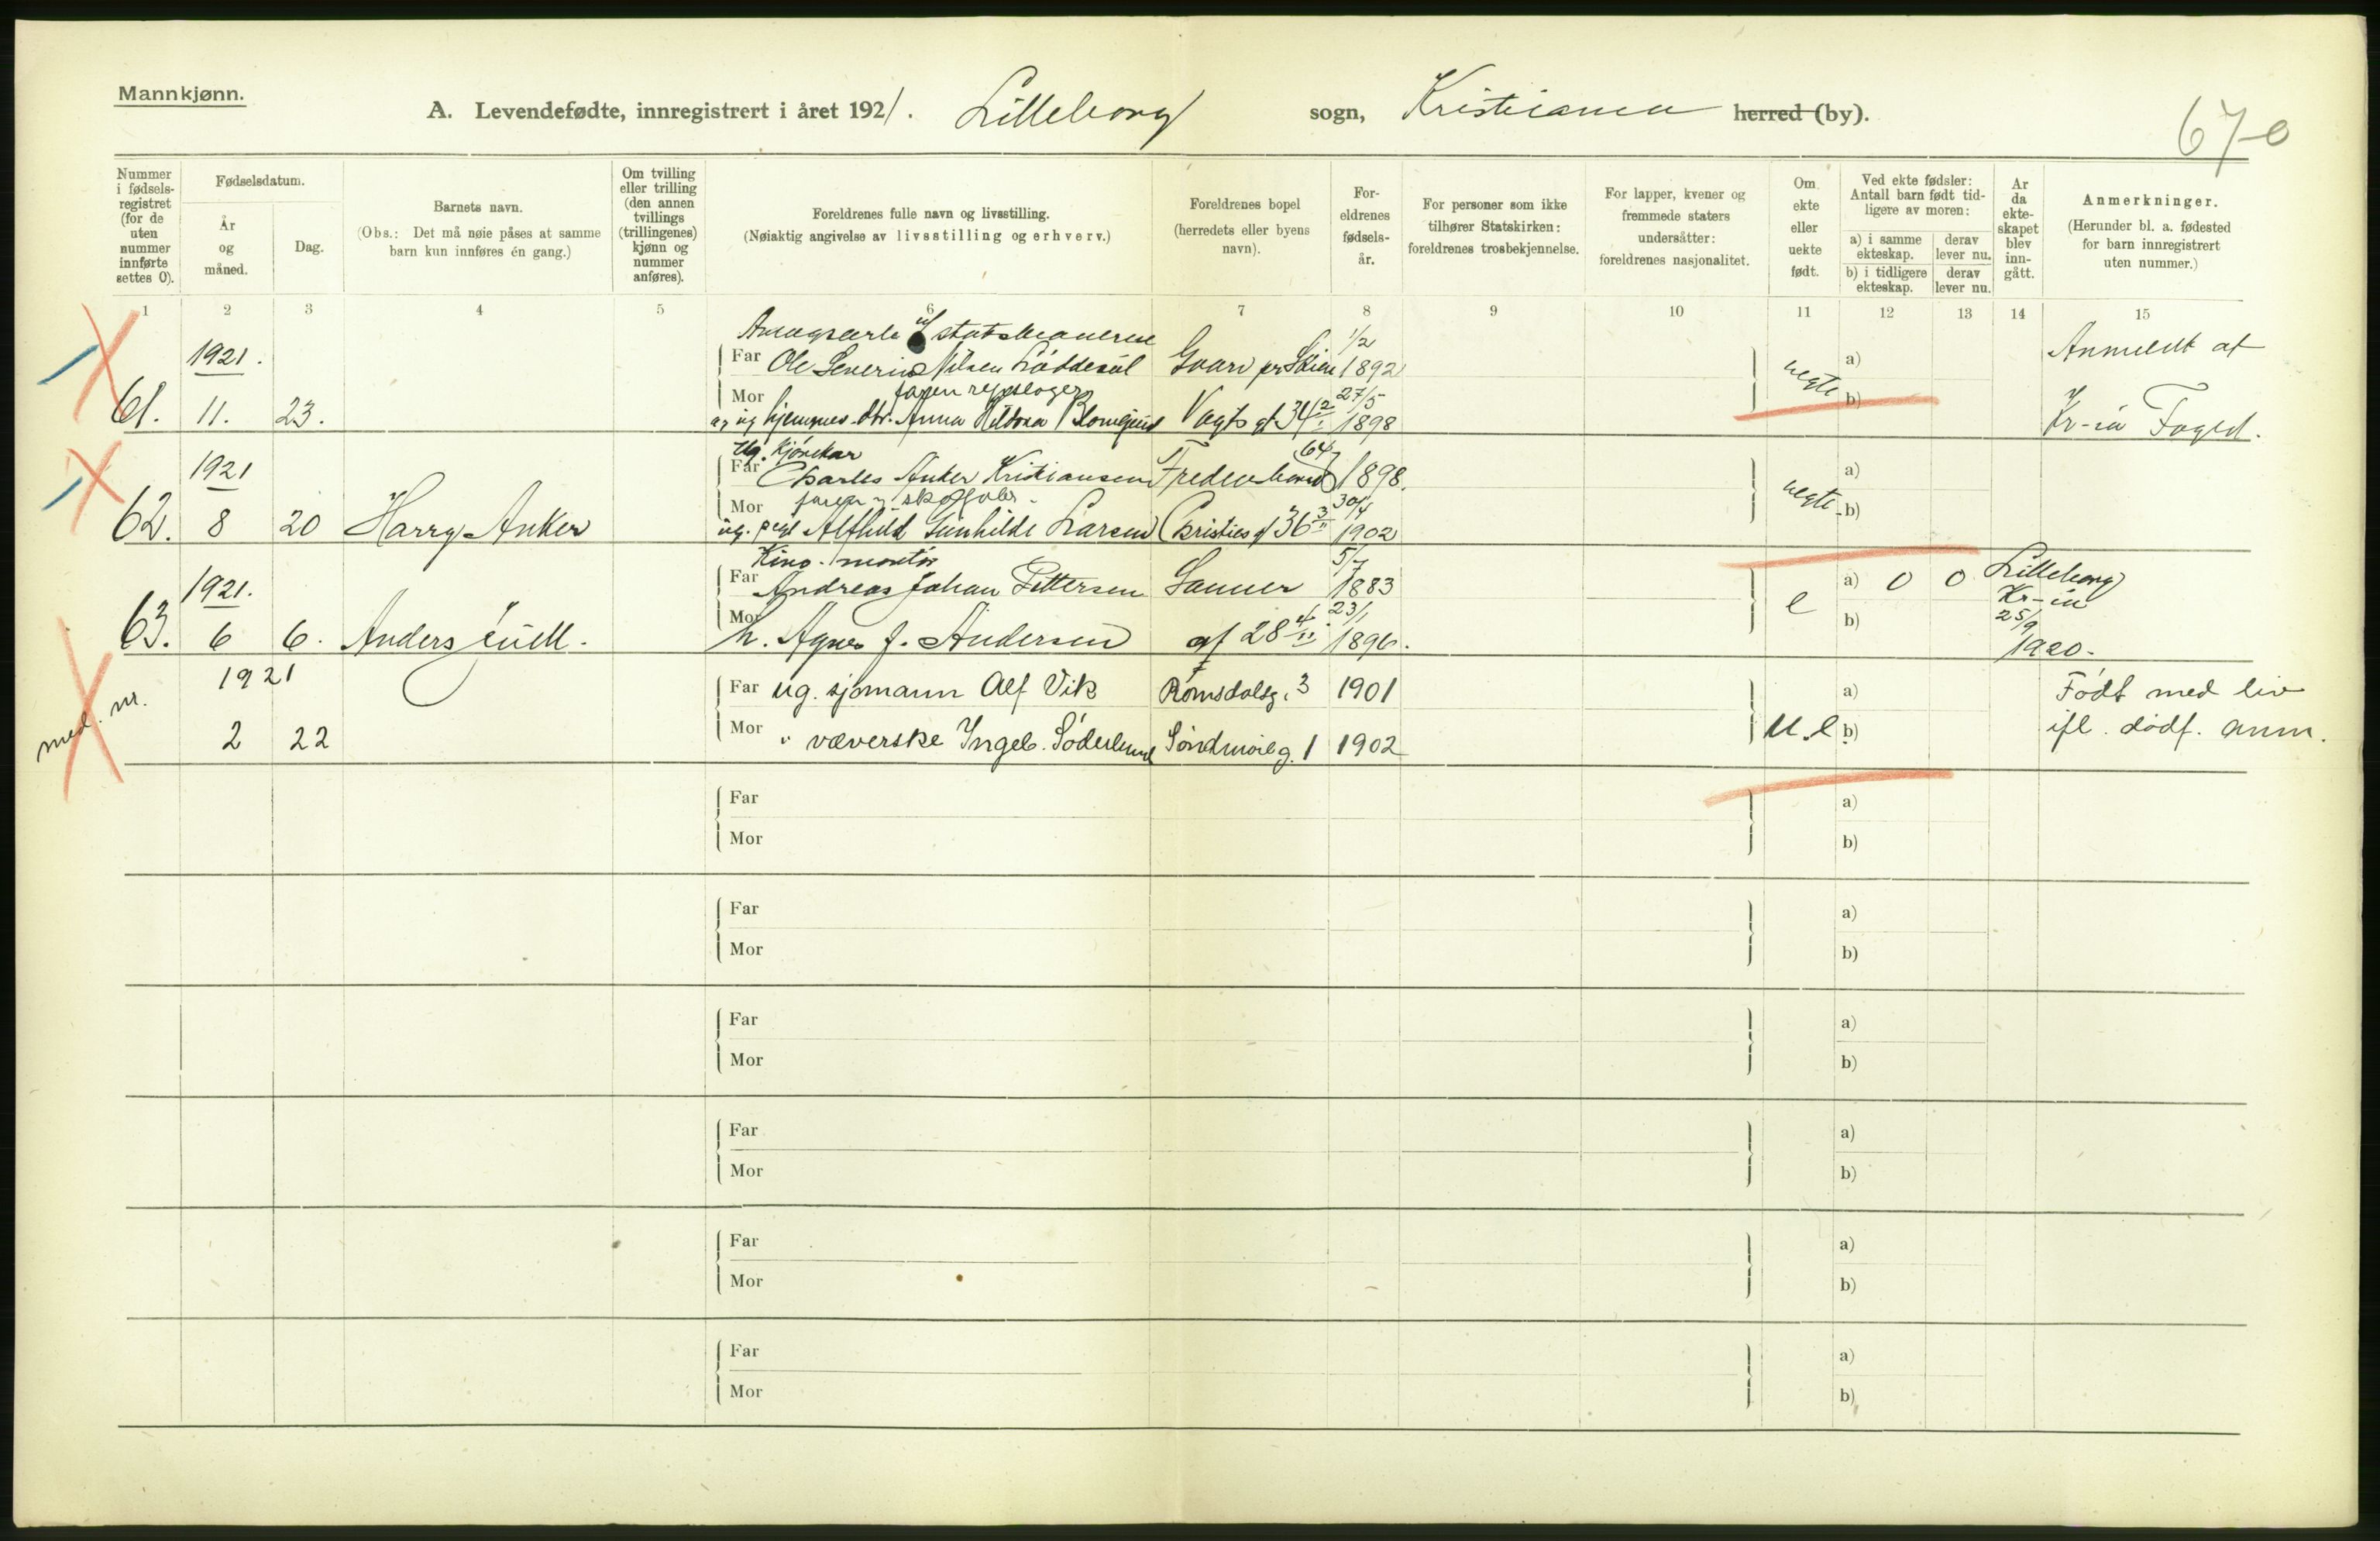 Mannkjønn.
A. Levendefødte, innregistrert i året 1921. Lilleborg sogn, Kristiania herred (by).
67-0
Nummer i fødsels-registret (for de uten nummer innførte settes 0).
Fødselsdatum.
År og måned.
Dag.
Barnets navn.
(Obs.: Det må nøie påses at samme barn kun innføres én gang.)
Om tvilling eller trilling (den annen tvillings (trillingenes) kjønn og nummer anføres).
Foreldrenes fulle navn og livsstilling.
(Nøiaktig angivelse av livsstilling og erhverv.)
Foreldrenes bopel (herredets eller byens navn).
For-eldrenes fødsels-år.
For personer som ikke tilhører Statskirken: foreldrenes trosbekjennelse.
For lapper, kvener og fremmede staters undersåtter: foreldrenes nasjonalitet.
Om ekte eller uekte født.
Ved ekte fødsler: Antall barn født tid-ligere av moren:
a) i samme ekteskap. derav lever nu.
b) i tidligere ekteskap. derav lever nu.
År da ekte-skapet blev inn-gått.
Anmerkninger.
(Herunder bl. a. fødested for barn innregistrert uten nummer.)
1 2 3 4 5 6 7 8 9 10 11 12 13 14 15
1921. Far Ole Severin Nilsen 1/2 1892 a) Anmeldt af
61. 11. 23. Mor Anna Vogts gt 34 2/II 27/5 1898 uegte b) Kr-ia Foged.
Ug. Kjørekar
1921 Far Charles Anker Kristiansen Fredensborgv 64 1898. a)
62. 8 20 Harry Anker Mor ug. Alfhild Gunhilde Larsen Christies gt 36 3/II 30/4 1902 uegte b)
Kino-montør
1921. Far Andreas Johan Pettersen Sanner 5/7 1883 a) 0 0 Lilleborg Kr-ia
63. 6 6. Anders Juell. Mor h. Agnes J. Andersen gt 28 4/II 23/1 1896. e b) 25/9 1920.
1921 Far ug. sjømann Alf Vik Romsdalsg. 3 1901 a) Født med liv
med. nr. 2 22 Mor " væverske Ingeb. Söderlund Söndmöreg. 1 1902 u.e b) ifl. dödf. anm.
Far a)
Mor b)
Far a)
Mor b)
Far a)
Mor b)
Far a)
Mor b)
Far a)
Mor b)
Far a)
Mor b)